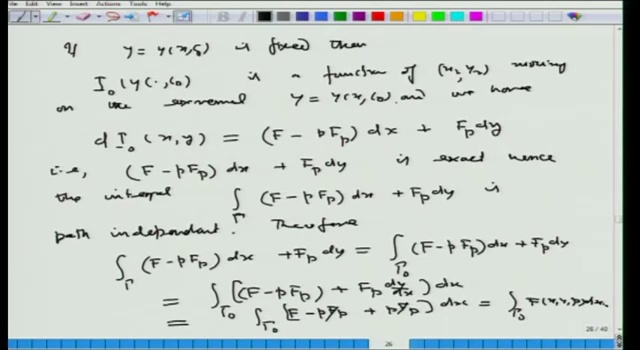 View Insert Actions Tools Help
If y = y(x,c₀) is fixed then
I₀(y(·,c₀)) is a function of (x₂,y₂) moving
on the extremal y = y(x,c₀) and we have
dI₀(x,y) = (F - pFp)dx + Fpdy
i.e., (F - pFp)dx + Fpdy is exact hence
the integral ∫Γ (F - pFp)dx + Fpdy is
path independant. Therefore
∫Γ (F - pFp)dx + Fpdy = ∫Γ₀ (F - pFp)dx + Fpdy
= ∫Γ₀ [(F - pFp) + Fp dy/dx] dx
= ∫Γ₀ [F - pFp + pFp] dx = ∫Γ₀ F(x,y,p)dx.
26 / 40
26